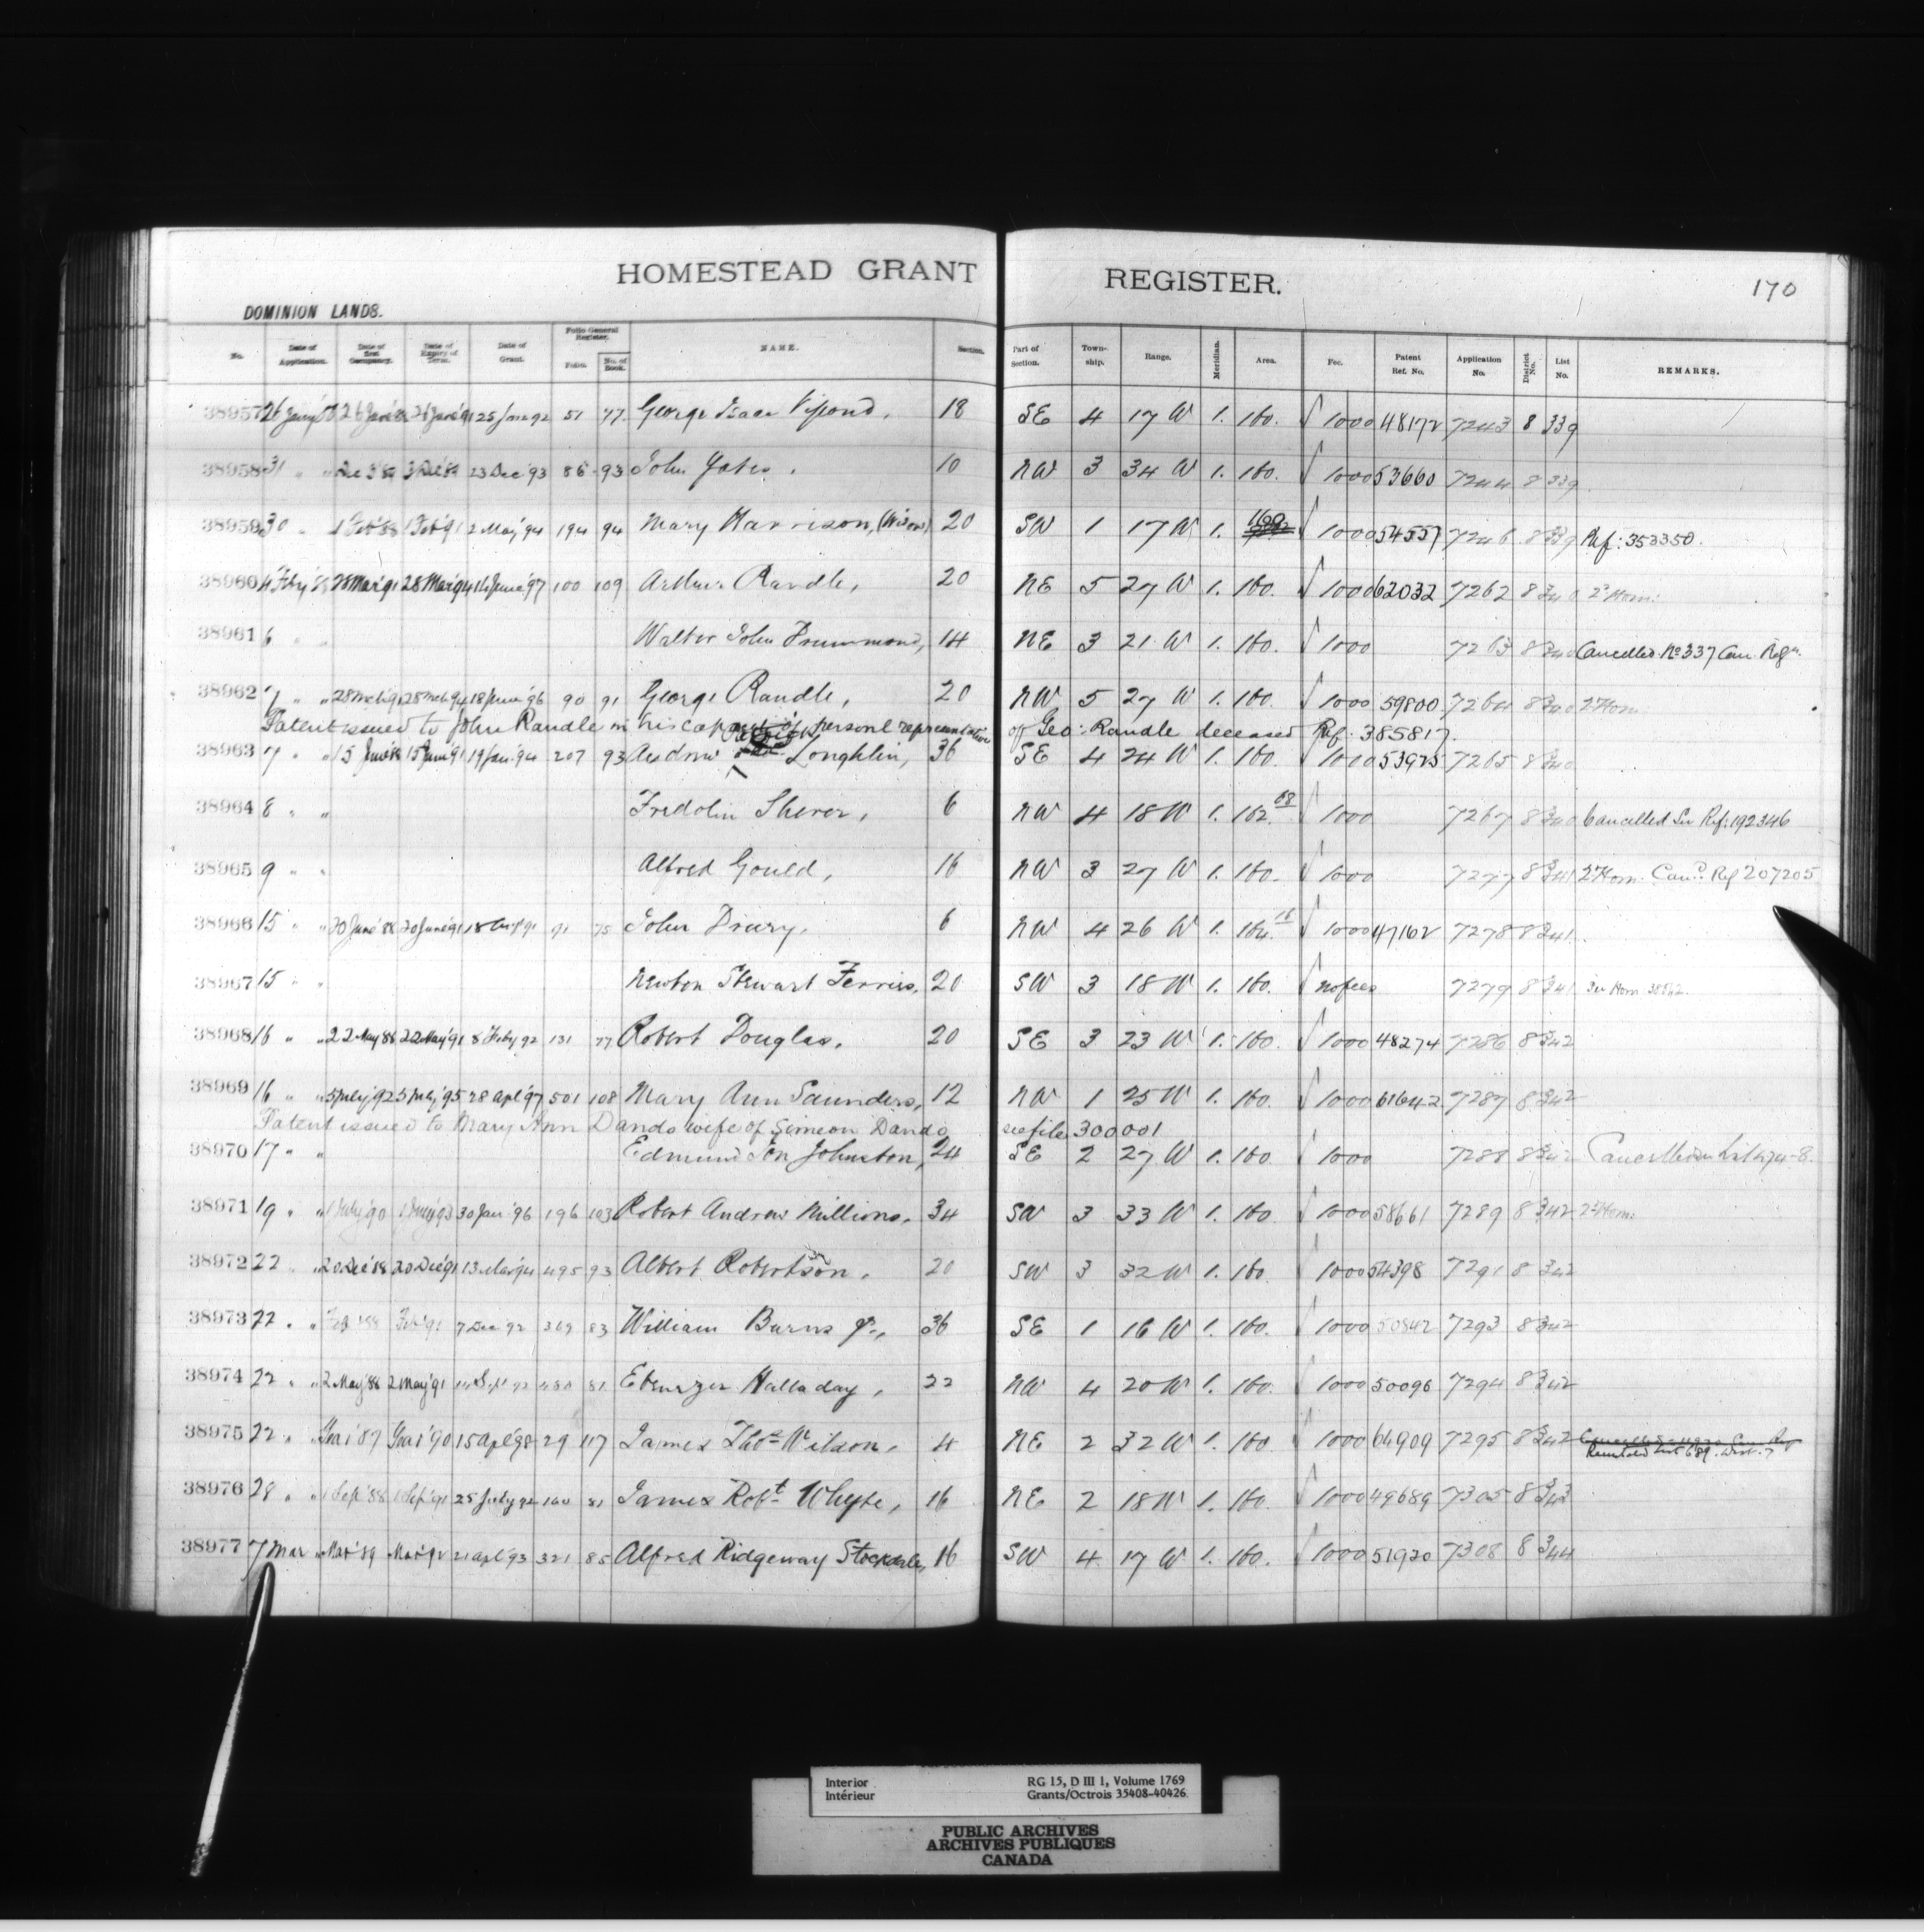 HOMESTEAD GRANT REGISTER. 170
DOMINION LANDS.
No. Date of Application. Date of first Occupancy. Date of Expiry of Term. Date of Grant. Folio General Register. Folio. No. of Book. NAME. Section. Part of Section. Township. Range. Meridian. Area. Fee. Patent Ref. No. Application No. District No. List No. REMARKS.
38957 26 25 Jan 92 51 77 George Isaac Vipond, 18 SE 4 17 W 1. 160. √ 1000 48172 7243 8 339
38958 31 " " 23 Dec '93 86 93 John Yates. 10 NW 3 34 W 1. 160. √ 1000 53660 7244 8 339
38959 30 " 1 Feb '88 1 Feb '91 2 May '94 194 94 Mary Harrison, (Widow) 20 SW 1 17 W 1. 160 1000 54557 7246 8 339 Ref: 353350.
38960 4 Feby 28 Mar '91 28 Mar '94 16 June '97 100 109 Arthur Randle, 20 NE 5 27 W 1. 160. √ 1000 62032 7262 8 340 2nd Hom:
38961 6 " " Walter John Drummond, 14 NE 3 21 W 1. 160. √ 1000 7263 8 340 Cancelled. No 337 Can. Regr.
38962 7 " " 28 Mch '91 28 Mch '94 18 June '96 90 91 George Randle, 20 NW 5 27 W 1. 160. √ 1000 59800 7264 8 340 2nd Hom:
Patent issued to John Randle in his capacity of personal representative of Geo: Randle deceased Ref: 385817.
38963 7 " " 15 June '88 15 June '91 19 Jan. '94 207 93 Andrew Loughlin, 36 SE 4 24 W 1. 160. 1000 53925 7265 8 340
38964 8 " " Fridolin Sherer, 6 NW 4 18 W 1. 162.08 √ 1000 7267 8 340 Cancelled See Ref: 192346
38965 9 " " Alfred Gould, 16 NW 3 27 W 1. 160. √ 1000 7277 8 341 2nd Hom: Cand. Ref 207205
38966 15 " " 20 June '88 20 June '91 18 Augt '91 91 75 John Drury. 6 NW 4 26 W 1. √ 1000 47162 7278 8 341
38967 15 " " Newton Stewart Ferriss, 20 SW 3 18 W 1. 160. √ no fees 7279 8 341
38968 16 " " 22 May 88 22 May '91 8 Feby 92 131 77 Robert Douglas. 20 SE 3 23 W 1. 160. √ 1000 48274 7286 8 342
38969 16 " " 5 July '92 5 July '95 28 Apl '97 501 108 Mary Ann Saunders, 12 NW 1 25 W 1. 160. √ 1000 61642 7287 8 342
Patent issued to Mary Ann Dando wife of Simeon Dando see file 300001
38970 17 " " Edmund Johnston, 24 SE 2 27 W 1. 160 √ 1000 7288 8 342
38971 19 " " 30 Jan. '96 196 103 Robert Andrew Millions, 34 SW 3 33 W 1. 160 √ 1000 58661 7289 8 342 2nd Hom:
38972 22 " " 20 Dec '88 20 Dec '91 13 Mar '94 495 93 Albert Robertson, 20 SW 3 32 W 1. 160. 1000 54398 7291 8 342
38973 22 " " Feb '88 Feb '91 7 Dec '92 369 83 William Burns Jr., 36 SE 1 16 W 1. 160. 1000 50842 7293 8 342
38974 22 " " 2 May '88 2 May '91 14 Sept 92 480 81 Ebenezer Halladay, 22 NW 4 20 W 1. 160. 1000 50096 7294 8 342
38975 22 " " 15 Apl '98 29 117 James Thos. Wilson, 4 NE 2 32 W 1. 160 1000 64909 7295 8 342
38976 28 " " 1 Sep '88 1 Sep '91 25 July 92 160 81 James Robt Whyte, 16 NE 2 18 W 1. 160. 1000 49689 7305 8 343
38977 7 Mar " Mar '89 Mar '92 21 Apl '93 321 85 Alfred Ridgeway Stockdale, 16 SW 4 17 W 1. 160. 1000 51920 7308 8 344
Interior RG 15, D III 1, Volume 1769
Intérieur Grants/Octrois 35408-40426
PUBLIC ARCHIVES
ARCHIVES PUBLIQUES
CANADA